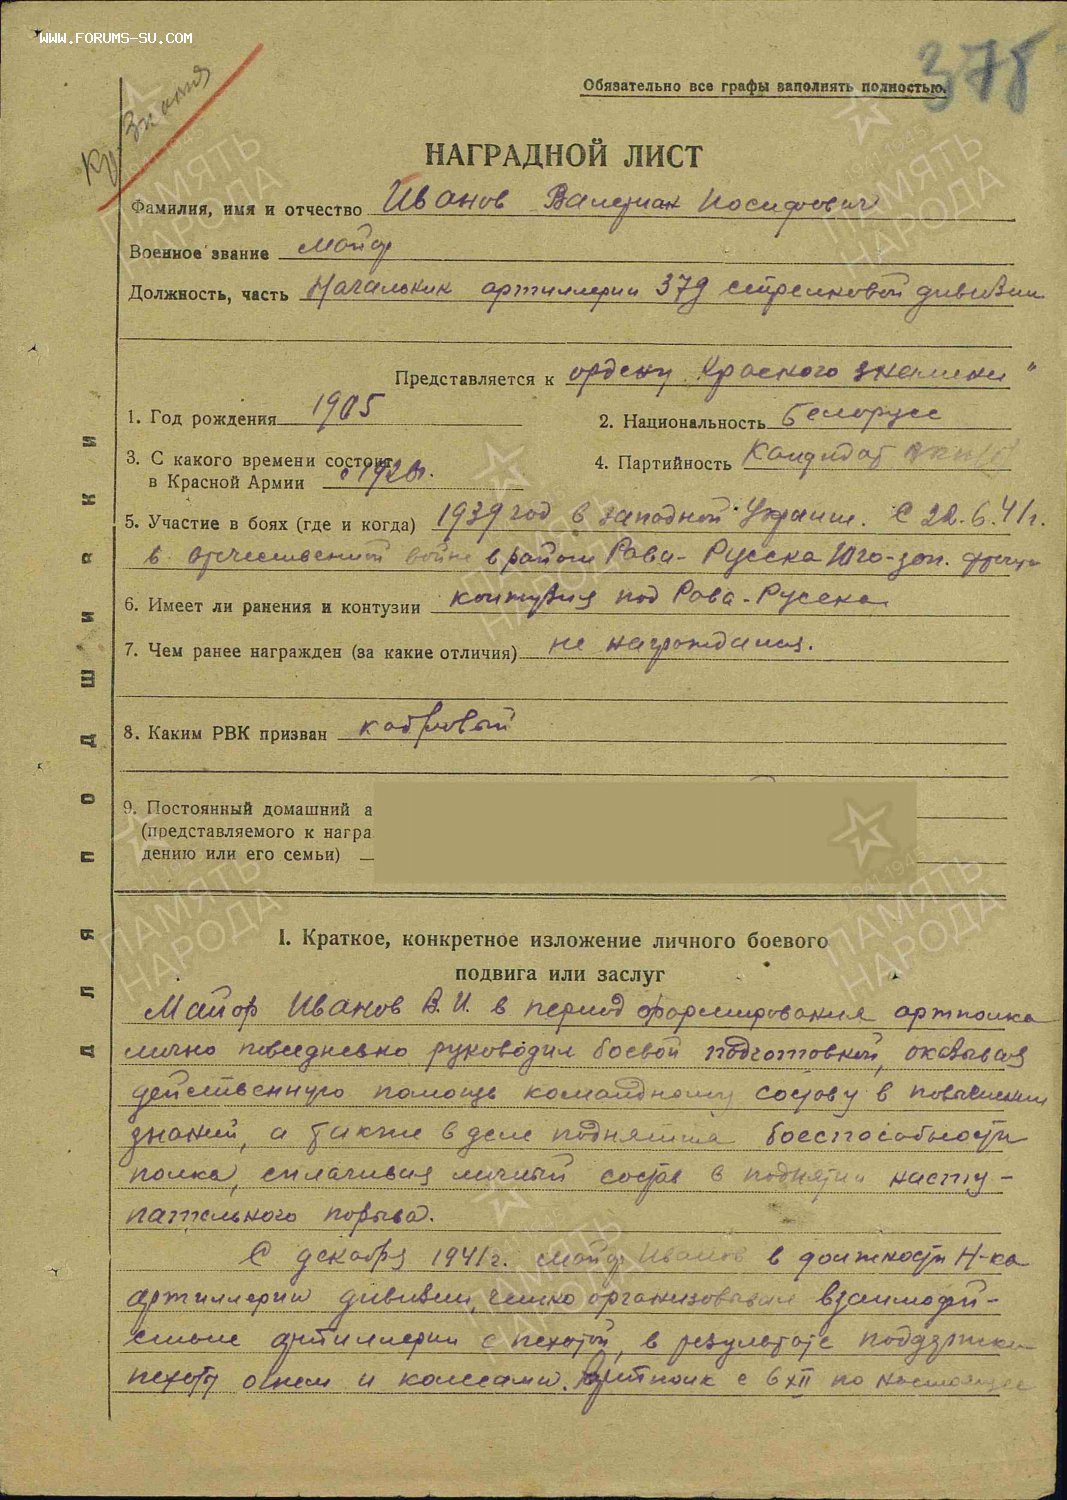 WWW.FORUMS-SU.COM
378
Кр. Знамя
Обязательно все графы заполнять полностью.
НАГРАДНОЙ ЛИСТ
Фамилия, имя и отчество Иванов Валериан Иосифович
Военное звание майор
Должность, часть Начальник артиллерии 379 стрелковой дивизии
Представляется к ордену „Красного знамени"
1. Год рождения 1905
2. Национальность Белорусс
3. С какого времени состоит
в Красной Армии с 192 г.
4. Партийность Кандидат
5. Участие в боях (где и когда) 1939 год в западной Украине. С 22.6.41г.
в отечественной войне в районе Рава-Русска Юго-зап. фронта
6. Имеет ли ранения и контузии контузия под Рава-Русска
7. Чем ранее награжден (за какие отличия) не награждался.
8. Каким РВК призван кадровый
9. Постоянный домашний а
(представляемого к награ
дению или его семьи)
I. Краткое, конкретное изложение личного боевого
подвига или заслуг
Майор Иванов В.И. в период формирования артполка
лично повседневно руководил боевой подготовкой, оказывая
действенную помощь командному составу в повышении
знаний, а также в деле поднятия боеспособности
полка, сплачивая личный состав в поднятии насту-
пательного порыва.
С декабря 1941г. майор Иванов в должности Н-ка
артиллерии дивизии, четко организовывал взаимодей-
ствие артиллерии с пехотой, в результате поддержки
пехоты огнем и колесами. Артполк с 6 XII по настоящее
ДЛЯ ПОДШИВКИ
ПАМЯТЬ
НАРОДА
1941 1945